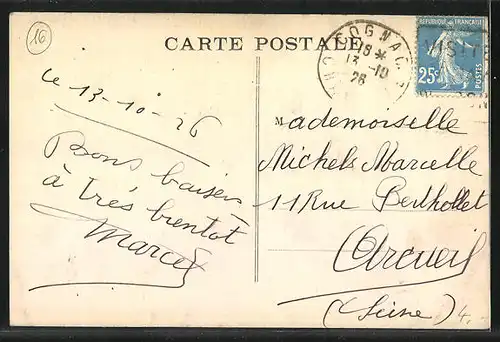 16
CARTE POSTALE
COGNAC
18 *
13 -10
26
REPUBLIQUE FRANÇAISE
25c
POSTES
VISIT
le 13-10-26
Bons baisers
à très bientot
Marcel
Mademoiselle
Michels Marcelle
11 Rue Berthollet
Arcueil
(Seine)
4.